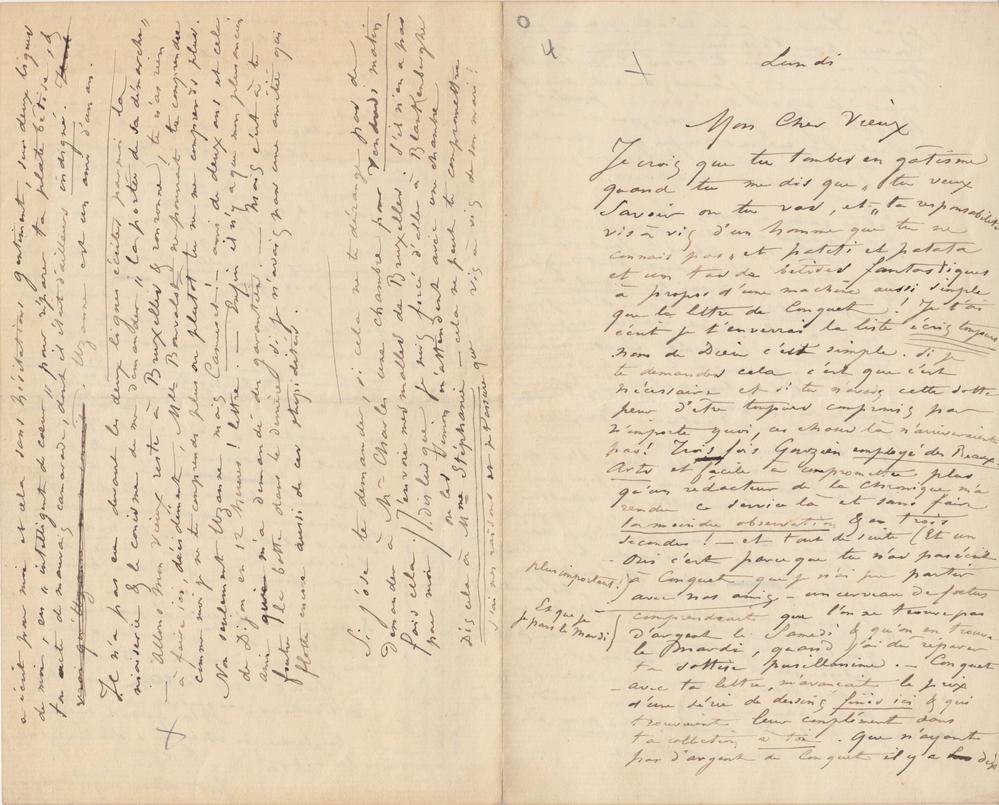 Lundi
Mon Cher Vieux
Je crois que tu tombes en gâtisme
quand tu me dis que „ tu veux
savoir où tu vas, et „ ta responsabilité
vis à vis d'un homme que tu ne
connais pas „ et patati et patata
et un tas de bêtises fantastiques
à propos d'une machine aussi simple
que la lettre de Conquet ! Je t'ai
écrit je t'enverrai la liste écris toujours
nom de Dieu c'est simple. Si je
te demandes cela c'est que c'est
nécessaire et si tu n'avais cette sotte
peur d'être toujours compromis par
n'importe quoi, ces choses là n'arriveraient
pas! Trois fois Gouzien employé des Beaux-
Arts et facile à compromettre plus
qu'un rédacteur de la Chronique m'a
rendu ce service là et sans faire
la moindre observation & en trois
secondes ! — et tout de suite (Et un
Ouis c'est parce que tu n'as pas écrit
à Conquet que je n'ai pu partir
plus important!
avec nos amis — un cerveau de fœtus
Est que je
pars le Mardi
comprendrait que l'on ne trouve pas
d'argent le Samedi & qu'on en trouve
le Mardi, quand j'ai dû réparer
ta sottise pusillanime. — Conquet
avec ta lettre, m'avançait le prix
d'une série de dessins finis ici & qui
trouvaient leur complément dans
ta collection à toi. Que n'ayant
pas d'argent de Conquet il y a dix
a écrit pour moi et cela sans hésitations g sur deux lignes
de moi, en „ intelligent de cœur „ pour réparer ta plate bêtise, &
en acte de mauvais camarade, dont il était d'ailleurs indigné.
Uzanne est un ami d'un an.
Je n'a pas eu devant les deux lignes écrites par moi la
niaiserie & le cœur de me demander „ la portée de sa démarche „
— Allons mon vieux reste à Bruxelles & ronronne ! tu n'as rien
à faire ici, décidément, Mlle Bonvalet ne pouvait te comprendre
comme moi je ne te comprends plus ou plutôt tu ne me comprends plus.
Non seulement Uzanne mais Camuset ! — amis de deux ans et cela
de Dijon en 12 heures ! lettre — Enfin il n'y a que mon plus ancien
ami qui m'a demandé des garanties ! — Mais c'est à te
foutre la botte dans le derrière si je n'avais pas une amitié qui
flotte encore au dessus de ces stupidités.
Si j'ose te demander, si cela ne te dérange pas de
Demander à Mr Charles une chambre pour Vendredi matin
fais cela. J'envoie mes malles de Bruxelles. S'il n'en a pas
pour moi // Dis le que je suis forcé d'aller à Blankenberghe
où les m'attendent avec une chambre
Dis cela à Mme Stéphanie — cela ne peut te compromettre
J'ai mes raisons vis à vis de son mari !